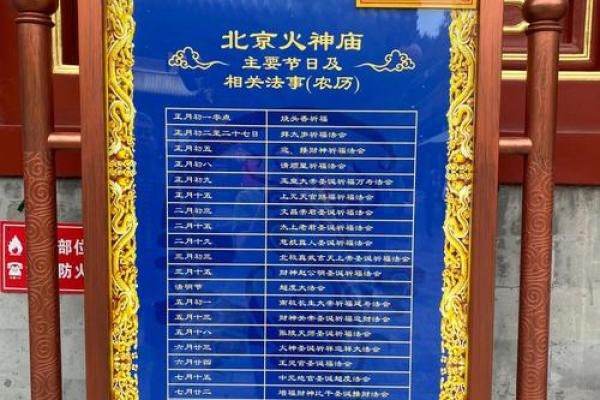 北京火神庙
主要节日及
相关法事(农历)
正月初一零点 烧头香祈福
正月初二至二十七日 拜太岁祈福法会
正月初五 迎、接财神祈福法会
正月初八 请顺星祈福法会
正月初九 玉皇大帝圣诞祈福万寿法会
正月十五 上元天官赐福祈福法会
二月初三 文昌帝君圣诞祈福法会
二月十五 太上老君圣诞祈福法会
二月十九 慈航真人圣诞祈福法会
三月初三 北极真武玄天上帝圣诞祈福法会
三月十五 财神赵公明圣诞祈福法会
清明节 超度大法会
五月初一 南极长生大帝祈福延寿法会
五月十三 财神关帝圣诞祈福迎财法会
五月十八 张陵天师圣诞祈福法会
六月廿三 火神圣诞祈祥迎祥大法会
六月廿四 王灵官圣诞祈福法会
七月十五 中元地官圣诞超度法会
七月廿二 增福财神比干圣诞接财法会
部位
防火